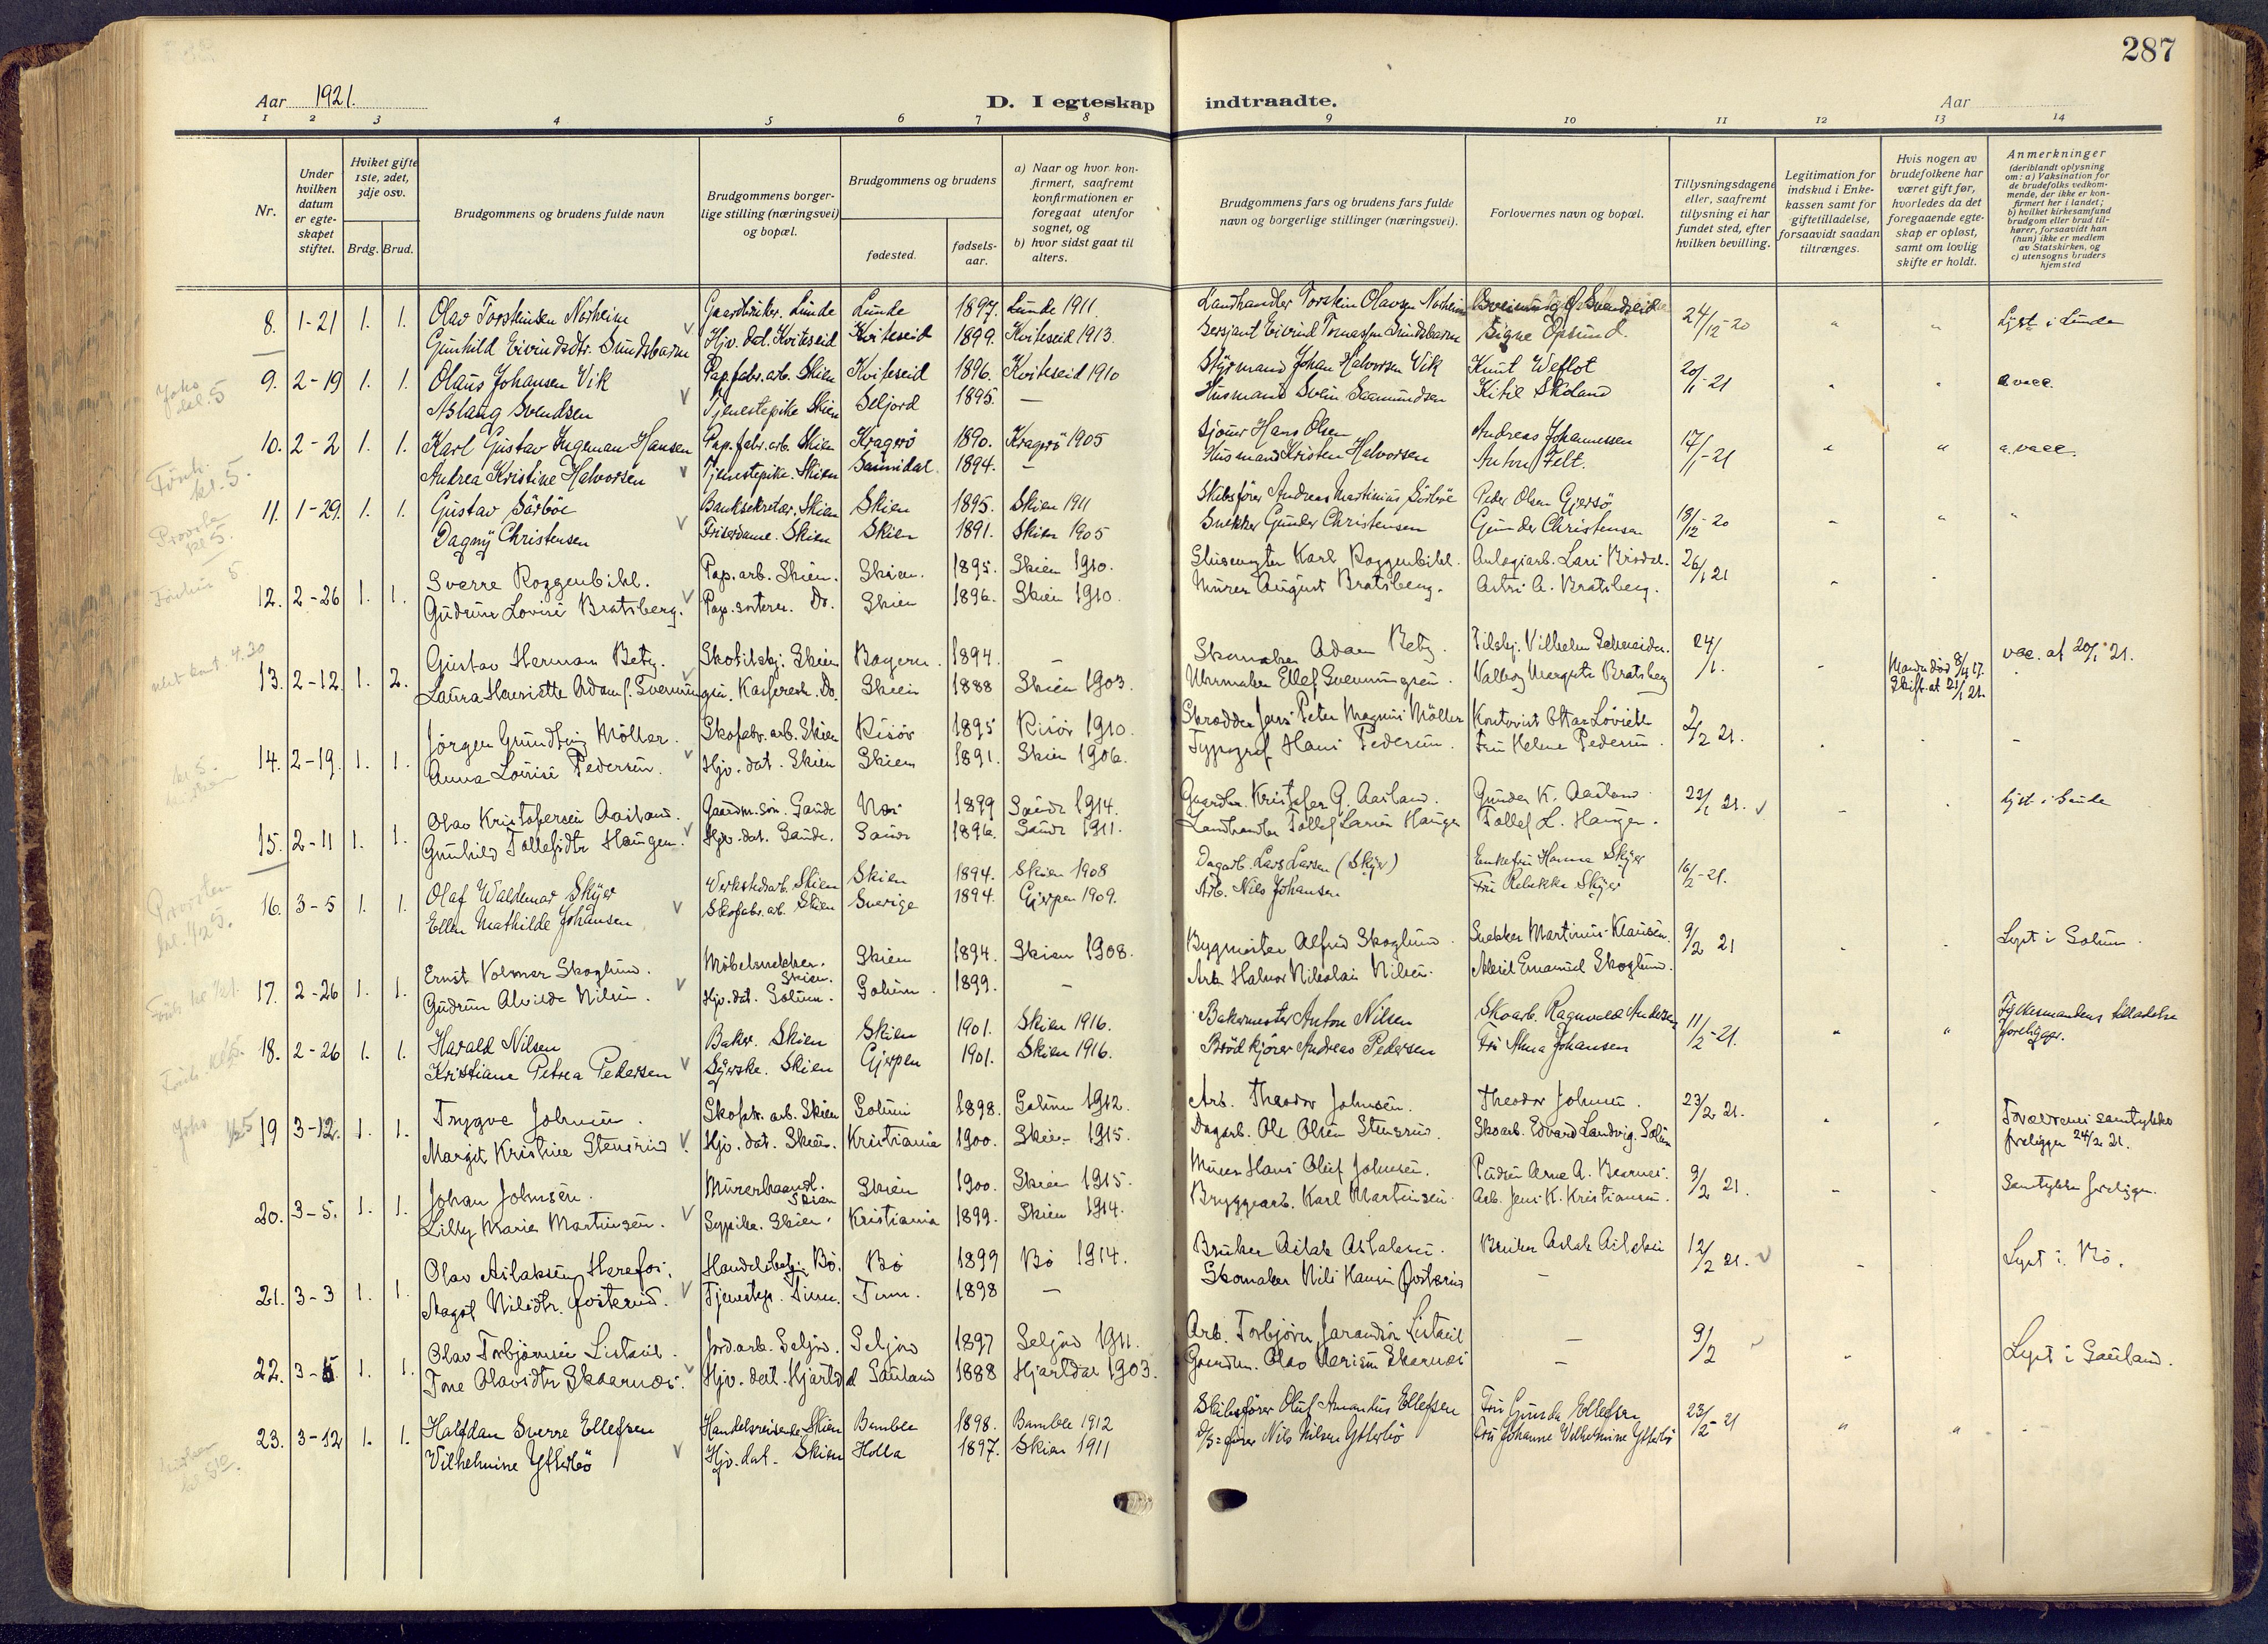 287
Aar 1921.
D. I egteskap indtraadte.
Aar
1 2 3 4 5 6 7 8 9 10 11 12 13 14
Nr.
Under hvilken datum er egte-skapet stiftet.
Hviket gifte 1ste, 2det, 3dje osv.
Brdg. Brud.
Brudgommens og brudens fulde navn
Brudgommens borger-lige stilling (næringsvei) og bopæl.
Brudgommens og brudens
fødested.
fødsels-aar.
a) Naar og hvor kon-firmert, saafremt konfirmationen er foregaat utenfor sognet, og
b) hvor sidst gaat til alters.
Brudgommens fars og brudens fars fulde navn og borgerlige stillinger (næringsvei).
Forlovernes navn og bopæl.
Tillysningsdagene eller, saafremt tillysning ei har fundet sted, efter hvilken bevilling.
Legitimation for indskud i Enke-kassen samt for giftetilladelse, forsaavidt saadan tiltrænges.
Hvis nogen av brudefolkene har været gift før, hvorledes da det foregaaende egte-skap er opløst, samt om lovlig skifte er holdt.
Anmerkninger (deriblandt oplysning om: a) Vaksination for de brudefolks vedkom-mende, der ikke er kon-firmert her i landet; b) hvilket kirkesamfund brudgom eller brud til-hører, forsaavidt han (hun) ikke er medlem av Statskirken, og c) utensogns bruders hjemsted
8. 1-21 1. 1. Olav Torsteinsen Norheim Gaardbruker. Lunde Lunde 1897. Lunde 1911. Landhandler Torstein Olavsen Norheim 24/12-20 " " Lyst i Lunde
Gunhild Eivindsdtr. Sundsbarm Hjv. dat. Kviteseid Kviteseid 1899. Kviteseid 1913. Sersjant Eivind Tomassen Sundsbarm Signe Opsund.
9. 2-19 1. 1. Olaus Johansen Vik Pap.fabr.arb. Skien Kviteseid 1896. Kviteseid 1910 Styrmand Johan Halvorsen Vik Knut Weflot 20/1-21 " " a vacc.
Aslaug Svendsen Tjenestepike Skien Seljord 1895. — Husmand Svein Saamundsen Kitil Skoland
10. 2-2 1. 1. Karl Gustav Ingeman Hansen Pap.fabr.arb. Skien Kragerö 1890. Kragerö 1905 Sjömr Hans Olsen Andreas Johannessen 17/1-21 " " a. vacc.
Andrea Kristine Halvorsen Tjenestepike. Skien Sannidal. 1894. — Husmand Kristen Halvorsen Anton Felt.
11. 1-29. 1. 1. Gustav Sörböe Banksekretær. Skien Skien 1895. Skien 1911 Skibsfører Andreas Martinius Sörböe Peder Olsen Gjersö 18/12-20 " " "
Dagny Christensen Friserdame. Skien Skien 1891. Skien 1905 Snekker Gunder Christensen Gunder Christensen
12. 2-26 1. 1. Sverre Roggenbihl. Pap. arb. Skien. Skien. 1895. Skien 1910. Slusevogter Karl Roggenbihl. 26/1 21
Gudrun Lovise Bratsberg. Pap. sorterer. Do. Skien 1896. Skien 1910. Murer August Bratsberg. Astri A. Bratsberg.
13. 2-12. 1. 2. Gustav Herman Betz. Skotilskj. Skien Bayern. 1894. — Skomaker Adam Betz. Tilskj. Vilhelm Schneider. 24/1. vac. at 20/1 21.
Laura Henriette Adams f. Svennungsen. Kasserers. Do. Skien 1888 Skien 1903. Uhrmaker Ellef Svennungsen. Valborg Margrete Bratsberg Mand död 8/4 17. Skift. at 21/1 21.
14. 2-19. 1. 1. Jörgen Grundtvig Möller. Skofabr. arb. Skien Risör 1895 Risör 1910. Skrædder Jens Peter Magnus Möller Kontorist Ottar 2/2 21. - -
Anna Lovise Pedersen. Hjv. dat. Skien Skien 1891. Skien 1906. Typograf Hans Pedersen. Fru Helene Pedersen.
15. 2-11 1. 1. Olav Kristofersen Aasland. Gaardm. søn. Saude 1899 Saude 1914. Gaardbr. Kristofer G. Aasland. Gunder K. Aasland 22/1 21. lyst i Saude
Gunhild Tollefsdtr Haugen. Hjv. dat. Saude. Saude 1896. Saude 1911. Landhandler Tollef Larsen Haugen Tollef L. Haugen.
16. 3-5 1. 1. Olaf Waldemar Skyer Verkstedarb. Skien Skien 1894. Skien 1908 Dagarb. Lars Larsen (Skyer) Enkefru Hanna Skyer 16/2-21.
Ellen Mathilde Johansen Skofabr. arb. Skien Sverige 1894. Gjerpen 1909. Arb. Nils Johansen Fru Rebekka Skyer
17. 2-26 1. 1. Ernst Volmar Skoglund. Möbelsnekker. Skien. Skien 1894. Skien 1908. Bygmester Alfred Skoglund. Snekker Martinius Klausen. 9/2 21 Lyst i Solum.
Gudrun Alvilde Nilsen. Hjv. dat. Solum. Solum. 1899. — Arb. Halvor Nikolai Nilsen. Aksel Emanuel Skoglund.
18. 2-26 1. 1. Harald Nilsen Baker. Skien Skien 1901. Skien 1916. Bakermester Anton Nilsen Skoarb. Ragnvald Andersen 11/2-21. " " Fylkesmandens tilladelse foreligger.
Kristiane Petrea Pedersen Syerske. Skien Gjerpen 1901. Skien 1916. Brödkjörer Andreas Pedersen Fru Alma Johansen
19 3-12. 1. 1. Trygve Johnsen. Skofabr. arb. Skien Solum 1898. Solum 1912. Arb. Theodor Johnsen. Theodor Johnsen. 23/2 21. Forældrenes samtykke foreligger 24/2 21.
Margit Kristine Stensrud. Hjv. dat. Skien. Kristiania 1900. Skien 1915. Dagarb. Ole Olsen Stensrud. Skoarb. Edvard Landvig. Solum
20. 3-5. 1. 1. Johan Johnsen. Murerhaandl. Skien Skien 1900. Skien 1915. Murer Hans Oluf Johnsen. 9/2 21. Samtykke foreligger.
Lilly Marie Martinsen. Sypike. Skien. Kristiania 1899. Skien 1914. Bryggearb. Karl Martinsen. Arb. Jens K. Kristiansen.
21. 3-3 1. 1. Olav Aslaksen Herefos. Handelsbetj. Bö. Bö 1899 Bö 1914. Bruker Aslak Aslaksen. Bruker Aslak Aslaksen 12/2 21. Lyst i Bö.
Aagot Nilsdtr. Tjenestep. Tinn. Tinn. 1898 — Skomaker Nils Hansen —
22. 3-5. 1. 1. Olav Torbjörnsen Listaul. Jord.arb. Seljord. Seljord 1897 Seljord 1911. Arb. Torbjörn Jarandsön Listaul — 9/2 Lyst i Sauland.
Tone Olavsdtr Skaarnes. Hjv. dat. Hjartdal Sauland 1888 Hjartdal 1903. —
23. 3-12 1. 1. Halfdan Sverre Ellefsen Handelsreisende Skien Bamble 1898. Bamble 1912 Skibsfører Oluf Amandus Ellefsen Fru Gunda Ellefsen 23/2-21 " "
Vilhelmine Ytterbö Hjv. dat. Skien Holla 1897. Skien 1911 D/S=fører Nils Nilsen Ytterbö Fru Johanne Vilhelmine Ytterbö